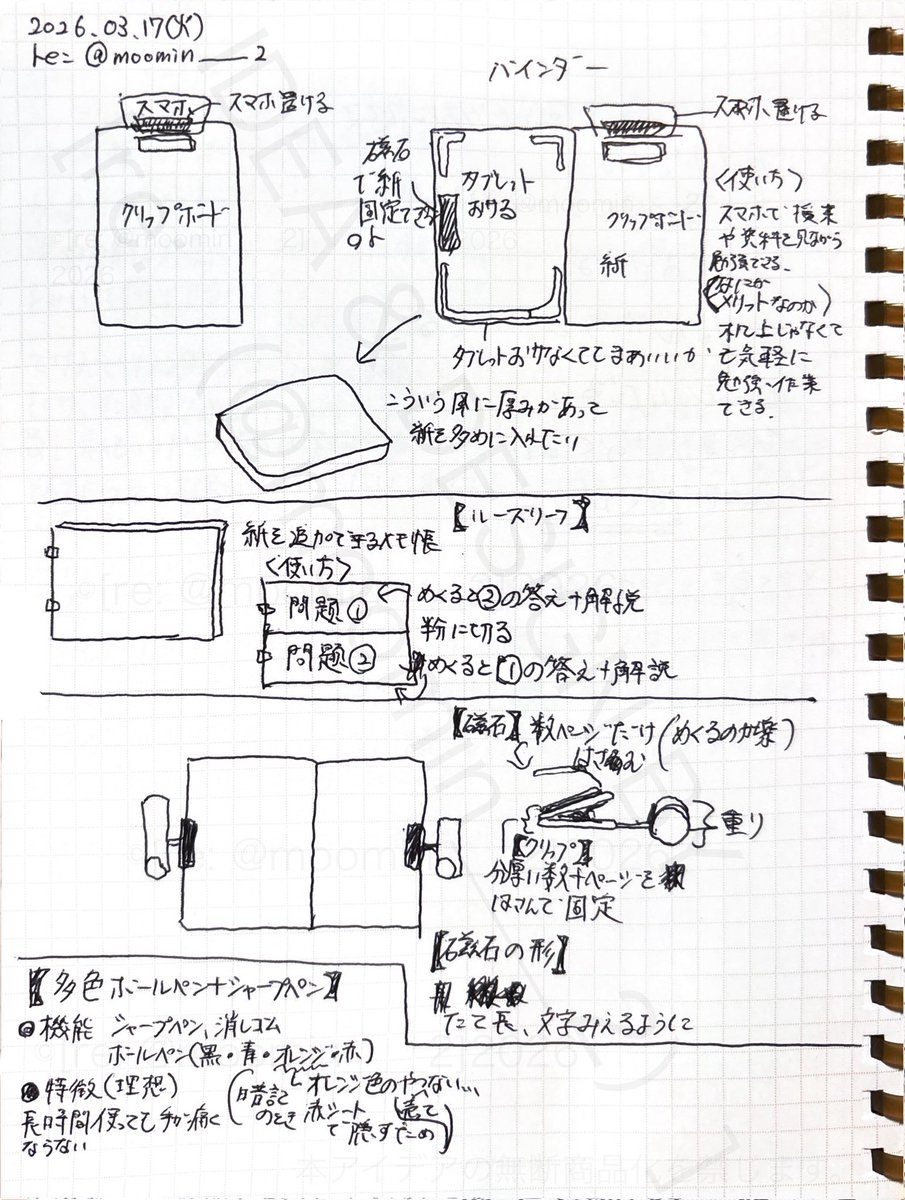 2026.03.17(火)
re: @moomin___2
バインダー
スマホ
スマホ置ける
クリップボード
磁石
で紙
固定できる
のよ
タブレット
おける
スマホ置ける
クリップボード
紙
〈使い方〉
スマホで検索
や資料を見ながら
勉強できる。
(なにが
メリットなのか)
机上じゃなくて
も気軽に
勉強・作業
できる。
タブレットおけなくてもまあいいか
こういう風に厚みがあって
紙を多めに入れたい
【ルーズリーフ】
紙を追加できるメモ帳
〈使い方〉
問題①
めくると②の答え+解説
半分に切る
問題②
めくると①の答え+解説
【磁石】数ページだけ(めくるのが楽)
はさむ
重り
【クリップ】
分厚い数十ページを
はさんで固定
【磁石の形】
たて長、文字みえるように
【多色ボールペン+シャープペン】
●機能 シャープペン、消しゴム
ボールペン(黒・青・オレンジ・赤)
●特徴(理想)
長時間使っても手が痛く
ならない
オレンジ色のやつない...
売って
(暗記のとき赤シートで隠すため)
IDEA & DESIGN BY
(@moomin___2)
本アイデアの無断商品化を禁じます